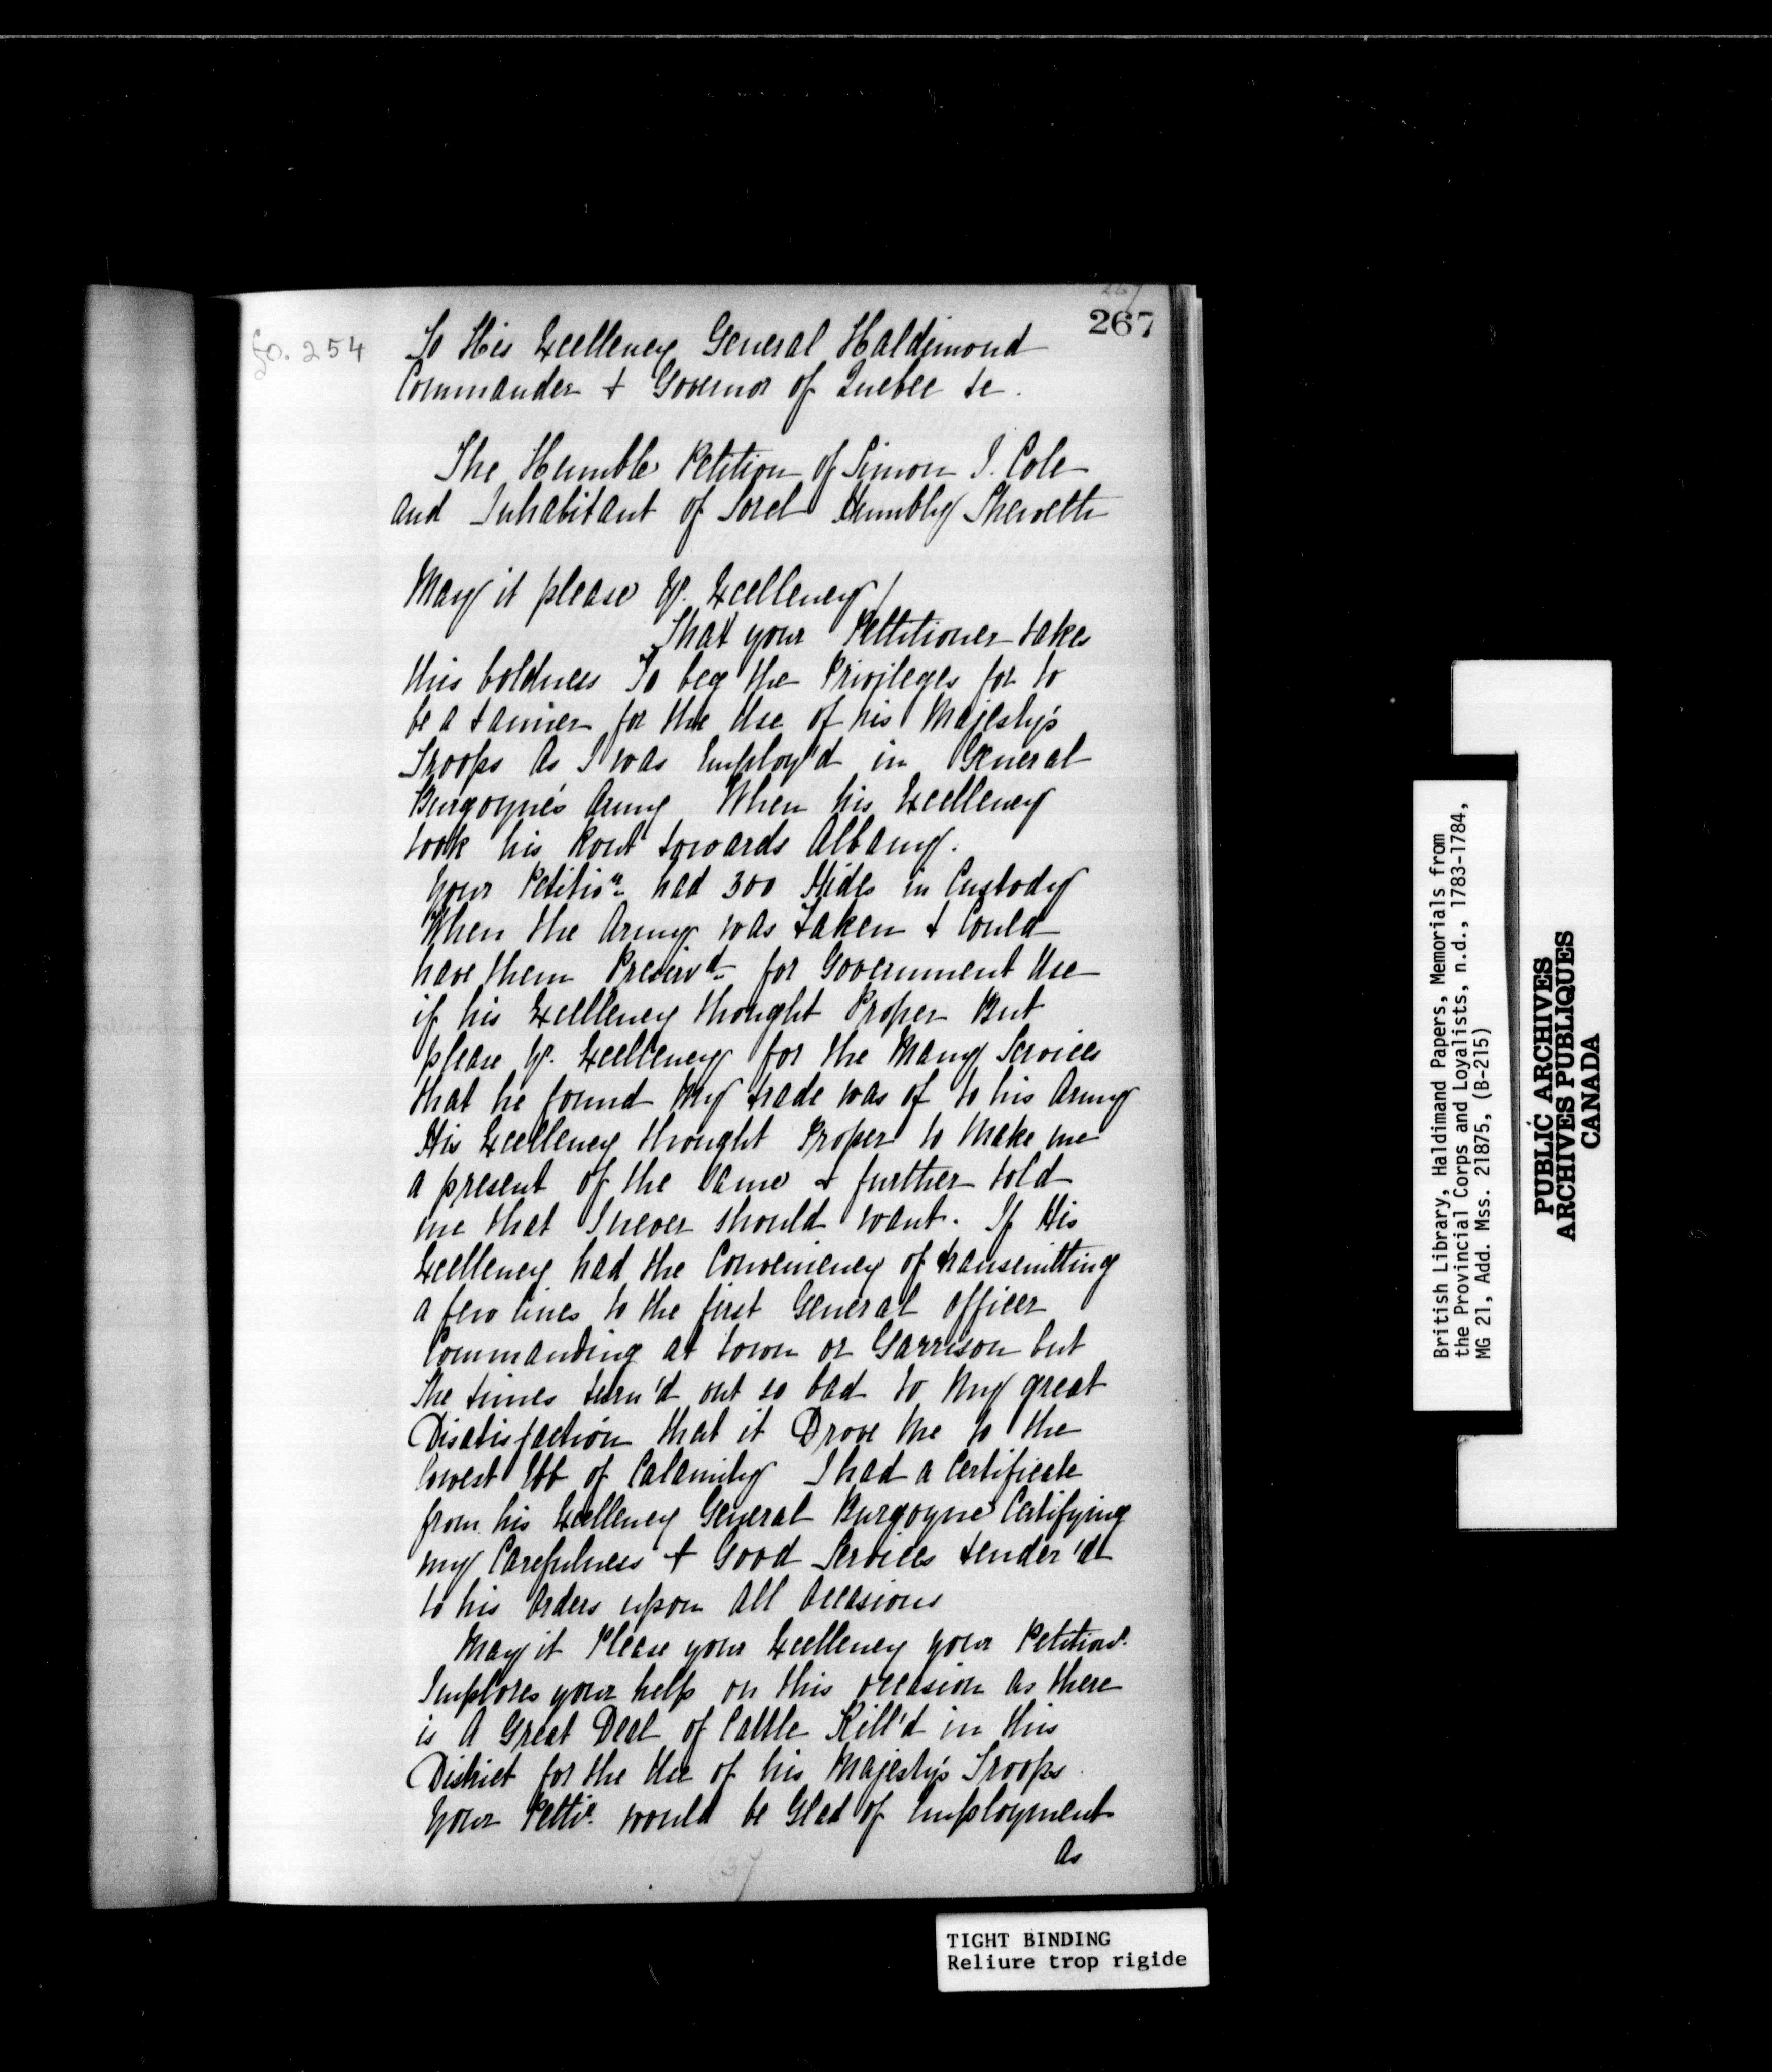 267
fo. 254
To His Excellency General Haldimond
Commander & Governor of Quebec &c.
The Humble Petition of Simon J. Cole
and Inhabitant of Sorel Humbly Sheweth
May it please Yr. Excellency/
That your Pettitioner takes
this boldness To beg the Privileges for to
be a tanner for the Use of his Majesty's
Troops As I was Employ'd in General
Burgoyne's Army When his Excellency
took his Rout towards Albany.
Your Petitionr. had 300 Hides in Custody
When the Army was taken & Could
have them Preserv'd for Government Use
if his Excellency thought Proper But
please Yr. Excellency for the Many Services
that he found My trade was of to his Army
His Excellency thought Proper to Make me
a present of the same & further told
me that I never should want. If His
Excellency had the Conveniency of transmitting
a few lines to the first General officer
Commanding at town or Garrison but
The times turn'd out so bad to My great
Disatisfaction that it Drove Me to the
lowest Ebb of Calamity I had a Certificate
from his Excellency General Burgoyne Certifying
my Carefulness & Good Services tender'd
to his Orders upon All Occasions
May it Please your Excellency your Petitionr.
Implores your help on this occasion as there
is A Great Deal of Cattle Kill'd in this
District for the Use of his Majesty's Troops.
Your Pettr. would be Glad of Employment
As
37
British Library, Haldimand Papers, Memorials from
the Provincial Corps and Loyalists, n.d., 1783-1784,
MG 21, Add. Mss. 21875, (B-215)
PUBLIC ARCHIVES
ARCHIVES PUBLIQUES
CANADA
TIGHT BINDING
Reliure trop rigide